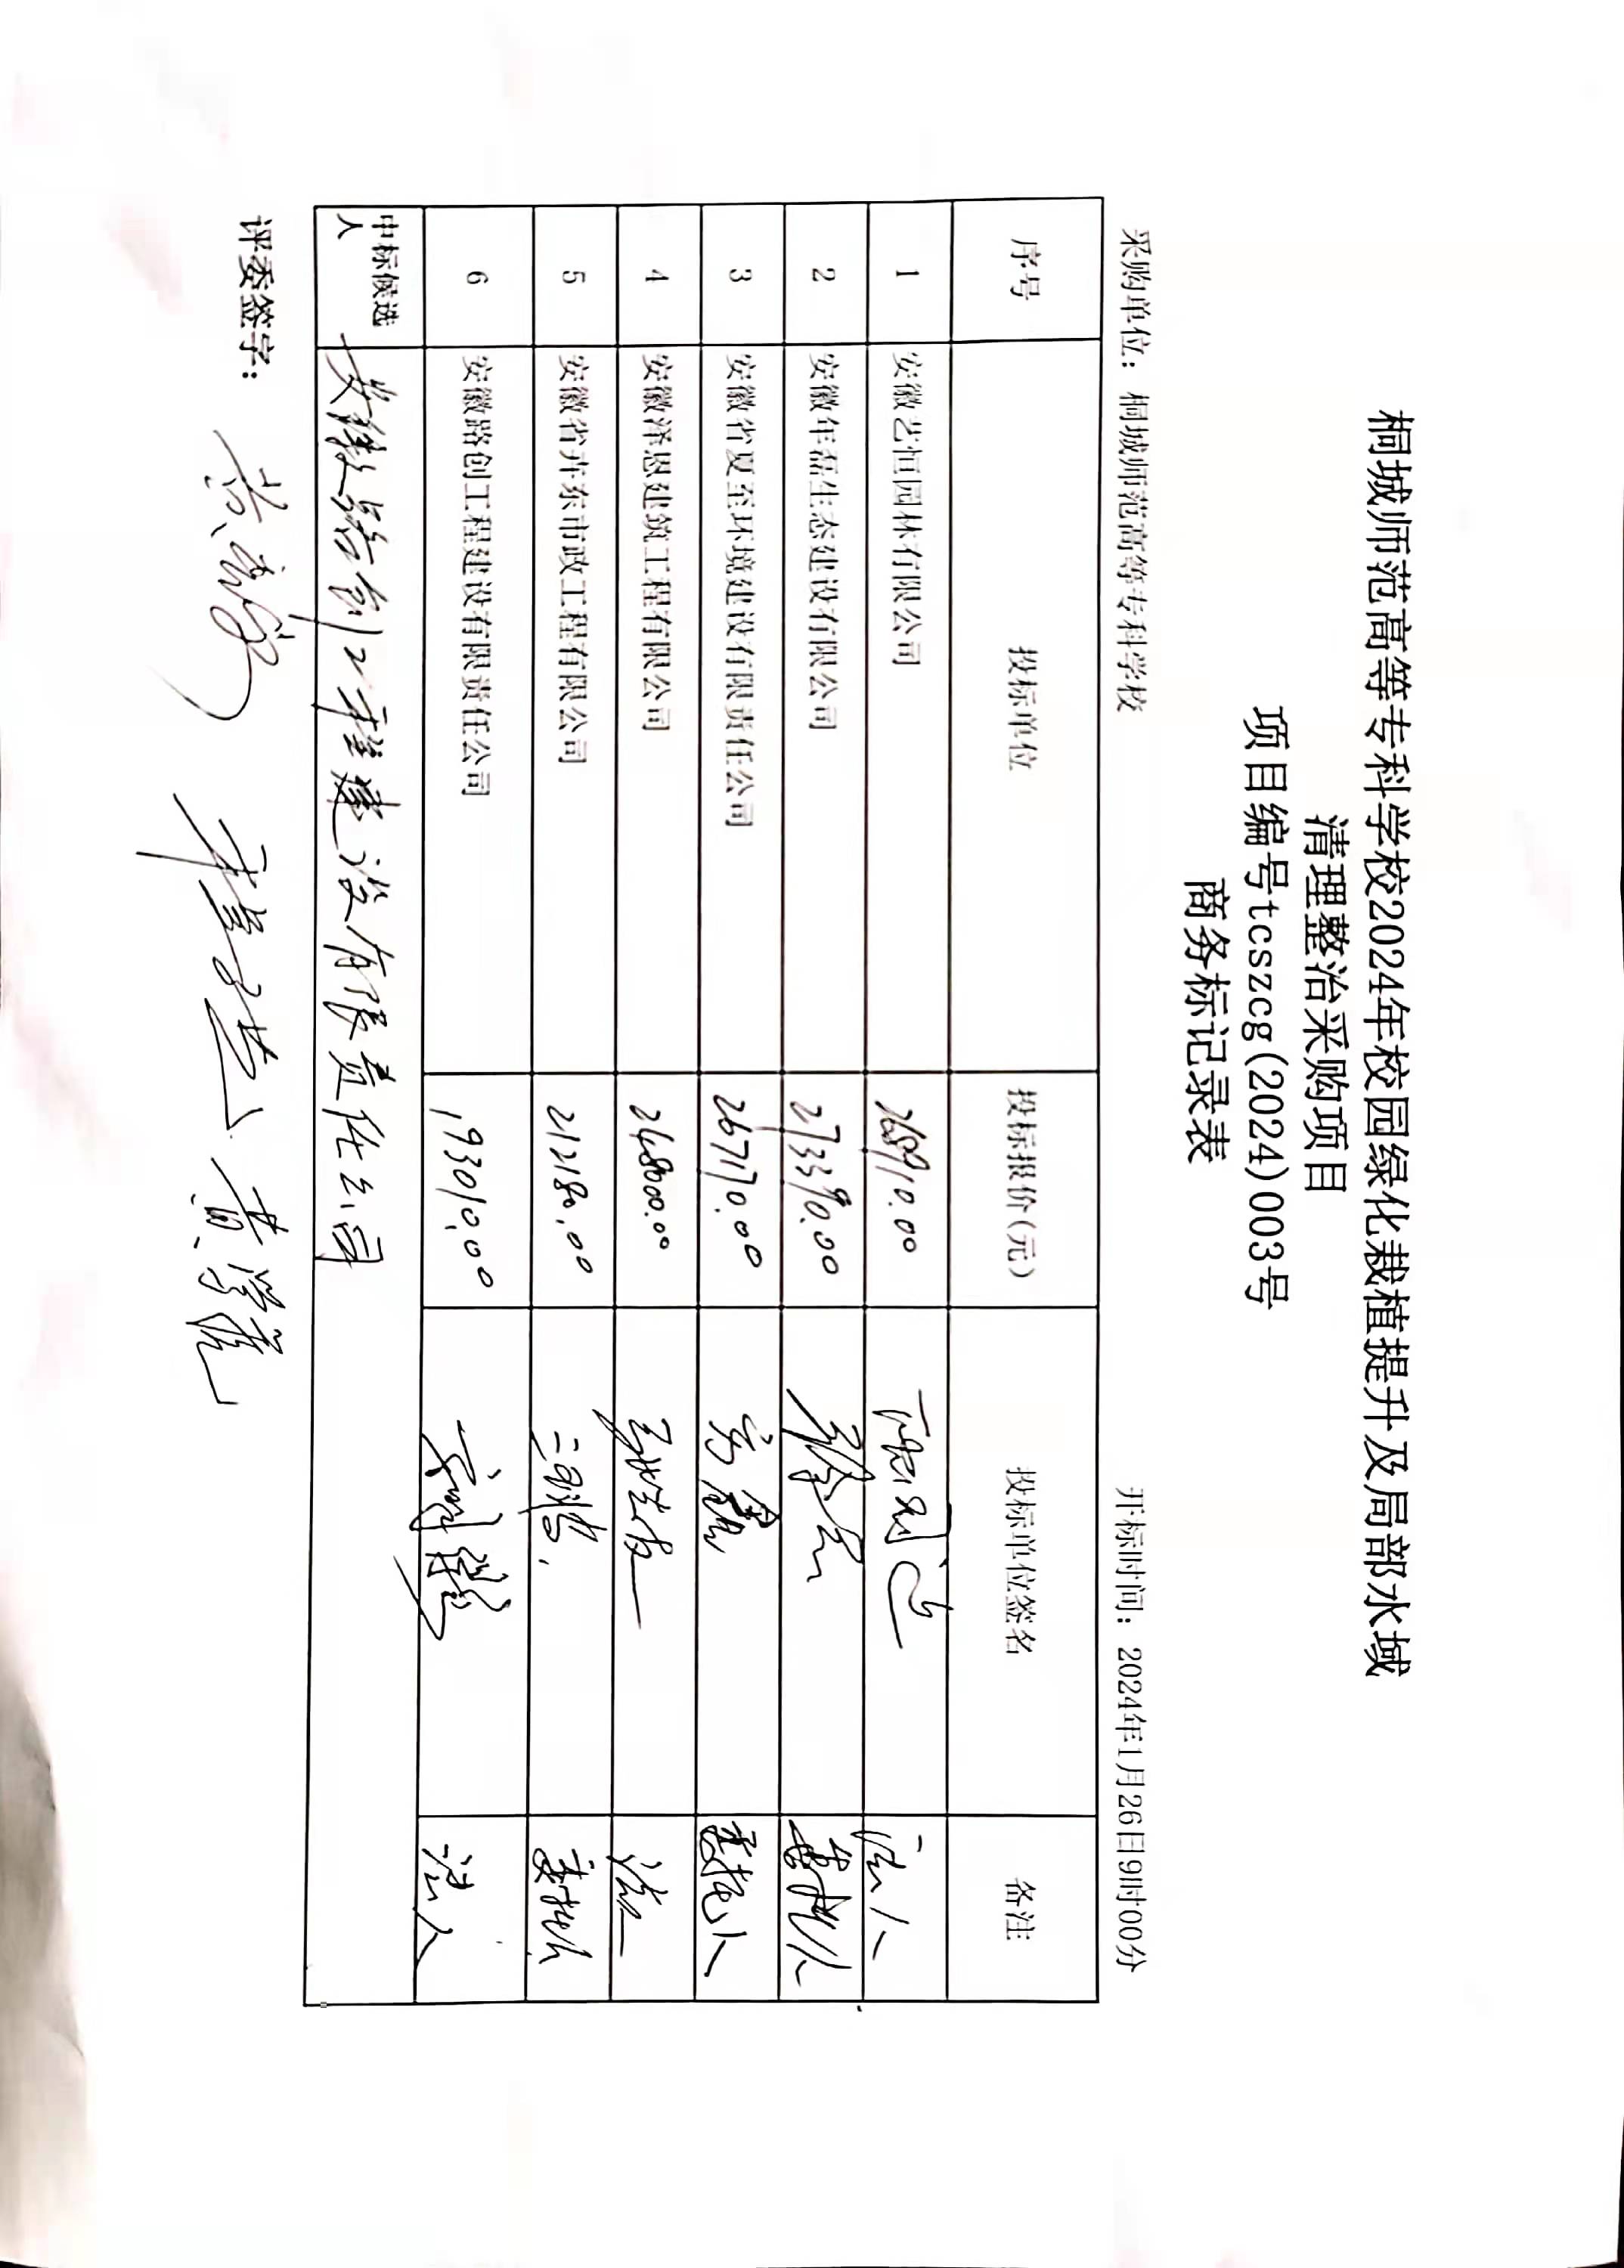 桐城师范高等专科学校2024年校园绿化栽植提升及局部水域
清理整治采购项目
项目编号tcszcg(2024)003号
商务标记录表
采购单位：桐城师范高等专科学校 开标时间：2024年1月26日9时00分
序号 投标单位 投标报价(元) 投标单位签名 备注
1 安徽艺恒园林有限公司 268910.00 法人
2 安徽年磊生态建设有限公司 273390.00 委托人
3 安徽省夏至环境建设有限责任公司 267170.00 委托人
4 安徽泽恩建筑工程有限公司 248000.00
5 安徽省卉东市政工程有限公司 212180.00
6 安徽路创工程建设有限责任公司 193010.00 法人
中标候选人 安徽路创工程建设有限责任公司
评委签字：